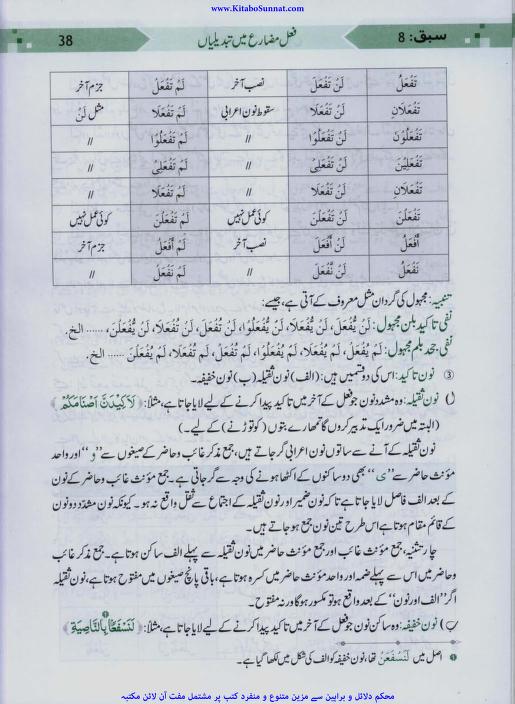 www.KitaboSunnat.com
سبق: 8 فعل مضارع میں تبدیلیاں 38
تَفْعَلُ لَنْ تَفْعَلَ نصب آخر لَمْ تَفْعَلْ جزم آخر
تَفْعَلَانِ لَنْ تَفْعَلَا سقوط نون اعرابی لَمْ تَفْعَلَا مثل لَنْ
تَفْعَلُوْنَ لَنْ تَفْعَلُوْا // لَمْ تَفْعَلُوْا //
تَفْعَلِيْنَ لَنْ تَفْعَلِيْ // لَمْ تَفْعَلِيْ //
تَفْعَلَانِ لَنْ تَفْعَلَا // لَمْ تَفْعَلَا //
تَفْعَلْنَ لَنْ تَفْعَلْنَ کوئی عمل نہیں لَمْ تَفْعَلْنَ کوئی عمل نہیں
أَفْعَلُ لَنْ أَفْعَلَ نصب آخر لَمْ أَفْعَلْ جزم آخر
نَفْعَلُ لَنْ نَّفْعَلَ // لَمْ نَفْعَلْ //
تنبیہ: مجہول کی گردان مثل معروف کے آتی ہے، جیسے:
نفی تاکید بلن مجہول: لَنْ يُّفْعَلَ، لَنْ يُّفْعَلَا، لَنْ يُّفْعَلُوْا، لَنْ تُفْعَلَ، لَنْ تُفْعَلَا، لَنْ يُّفْعَلْنَ، ...... الخ.
نفی جحد بلم مجہول: لَمْ يُفْعَلْ، لَمْ يُفْعَلَا، لَمْ يُفْعَلُوْا، لَمْ تُفْعَلْ، لَمْ تُفْعَلَا، لَمْ يُفْعَلْنَ ...... الخ.
③ نون تاکید: اس کی دو قسمیں ہیں: (الف) نون ثقیلہ (ب) نون خفیفہ۔
(ا) نون ثقیلہ: وہ مشدد نون جو فعل کے آخر میں تاکید پیدا کرنے کے لیے لایا جاتا ہے، مثلاً: ﴿لَاَكِيْدَنَّ اَصْنَامَكُمْ﴾
(البتہ میں ضرور ایک تدبیر کروں گا تمھارے بتوں (کو توڑنے) کے لیے۔)
نون ثقیلہ کے آنے سے ساتوں نون اعرابی گر جاتے ہیں، جمع مذکر غائب و حاضر کے صیغوں سے ”و“ اور واحد
مؤنث حاضر سے ”ی“ بھی دو ساکنوں کے اکٹھا ہونے کی وجہ سے گر جاتی ہے۔ جمع مؤنث غائب و حاضر کے نون
کے بعد الف فاصل لایا جاتا ہے تاکہ نون ضمیر اور نون ثقیلہ کے اجتماع سے ثقل واقع نہ ہو۔ کیونکہ نون مشدد دو نون
کے قائم مقام ہوتا ہے اس طرح تین نون جمع ہو جاتے ہیں۔
چار تثنیہ، جمع مؤنث غائب اور جمع مؤنث حاضر میں نون ثقیلہ سے پہلے الف ساکن ہوتا ہے۔ جمع مذکر غائب
و حاضر میں اس سے پہلے ضمہ اور واحد مؤنث حاضر میں کسرہ ہوتا ہے، باقی پانچ صیغوں میں مفتوح ہوتا ہے، نون ثقیلہ
اگر ”الف اور نون“ کے بعد واقع ہو تو مکسور ہوگا ورنہ مفتوح۔
(ب) نون خفیفہ: وہ ساکن نون جو فعل کے آخر میں تاکید پیدا کرنے کے لیے لایا جاتا ہے، مثلاً: ﴿لَنَسْفَعًا بِالنَّاصِيَةِ﴾
❶ اصل میں لَنَسْفَعَنْ تھا، نون خفیفہ کو الف کی شکل میں لکھا گیا ہے۔
محکم دلائل و براہین سے مزین متنوع و منفرد کتب پر مشتمل مفت آن لائن مکتبہ